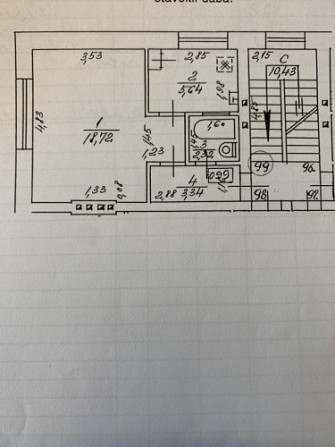 stāvokli dabā.
3,53
2,85
2,15
C
10,43
2
5,64
1,98
4,83
1
18,72
1,45
1,23
1,60
3
2,32
4
3,34
2,88
0,90
1,33
0,08
99
96
98
97